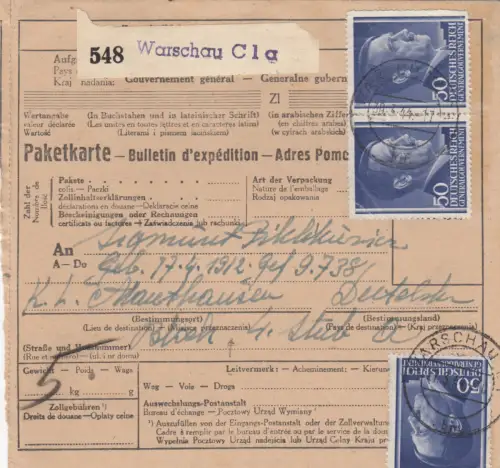 548 Warschau C1a
Aufg
Pays
Kraj nadania: Gouvernement général — Generalne gubern
Zł
Wertangabe (In Buchstaben und in lateinischer Schrift) (In arabischen Ziffer
valeur déclarée (Les unités en toutes lettres et en caractères latins) (en chiffres arabes)
Wartość (Literami i pismem łacińskiem) (w cyfrach arabskich)
Paketkarte — Bulletin d'expédition — Adres Pomo
Zahl der
Nombre de
Ilość
Pakete
colis — Paczki
Zollinhaltserklärungen
déclarations en douane — Deklaracje celne
Bescheinigungen oder Rechnungen
certificats ou factures — Zaświadczenia lub rachunki
Art der Verpackung
Nature de l'emballage
Rodzaj opakowania
An
A — Do
Sigmunt
Geb. 17.4.1912 Gef 9.738/
K. L. Mauthausen
(Bestimmungsort) (Bestimmungsland)
(Lieu de destination) (Miejsce przeznaczenia) (Pays de destination) (Kraj przeznaczenia
Block 4. Stub a
(Straße und Hausnummer)
(Rue et numéro) (ul. i nr domu)
Gewicht — Poids — Waga
5
kg g
Leitvermerk: — Acheminement: — Kierune
Weg — Voie — Droga
Zollgebühren
Droits de douane — Opłaty celne
Auswechslungs-Postanstalt
Bureau d'échange — Pocztowy Urząd Wymiany
Auszufüllen von der Eingangs-Postanstalt oder der Zollverwaltun
A remplir par le bureau d'entrée ou par le service de la doua
Wypełnia Pocztowy Urząd nadejścia lub Urząd Celny kraju pr
50
DEUTSCHES REICH
GENERALGOUVERNEMENT
50
DEUTSCHES REICH
GENERALGOUVERNEMENT
WARSCHAU
50
DEUTSCHES REICH
GENERALGOUVERNEMENT